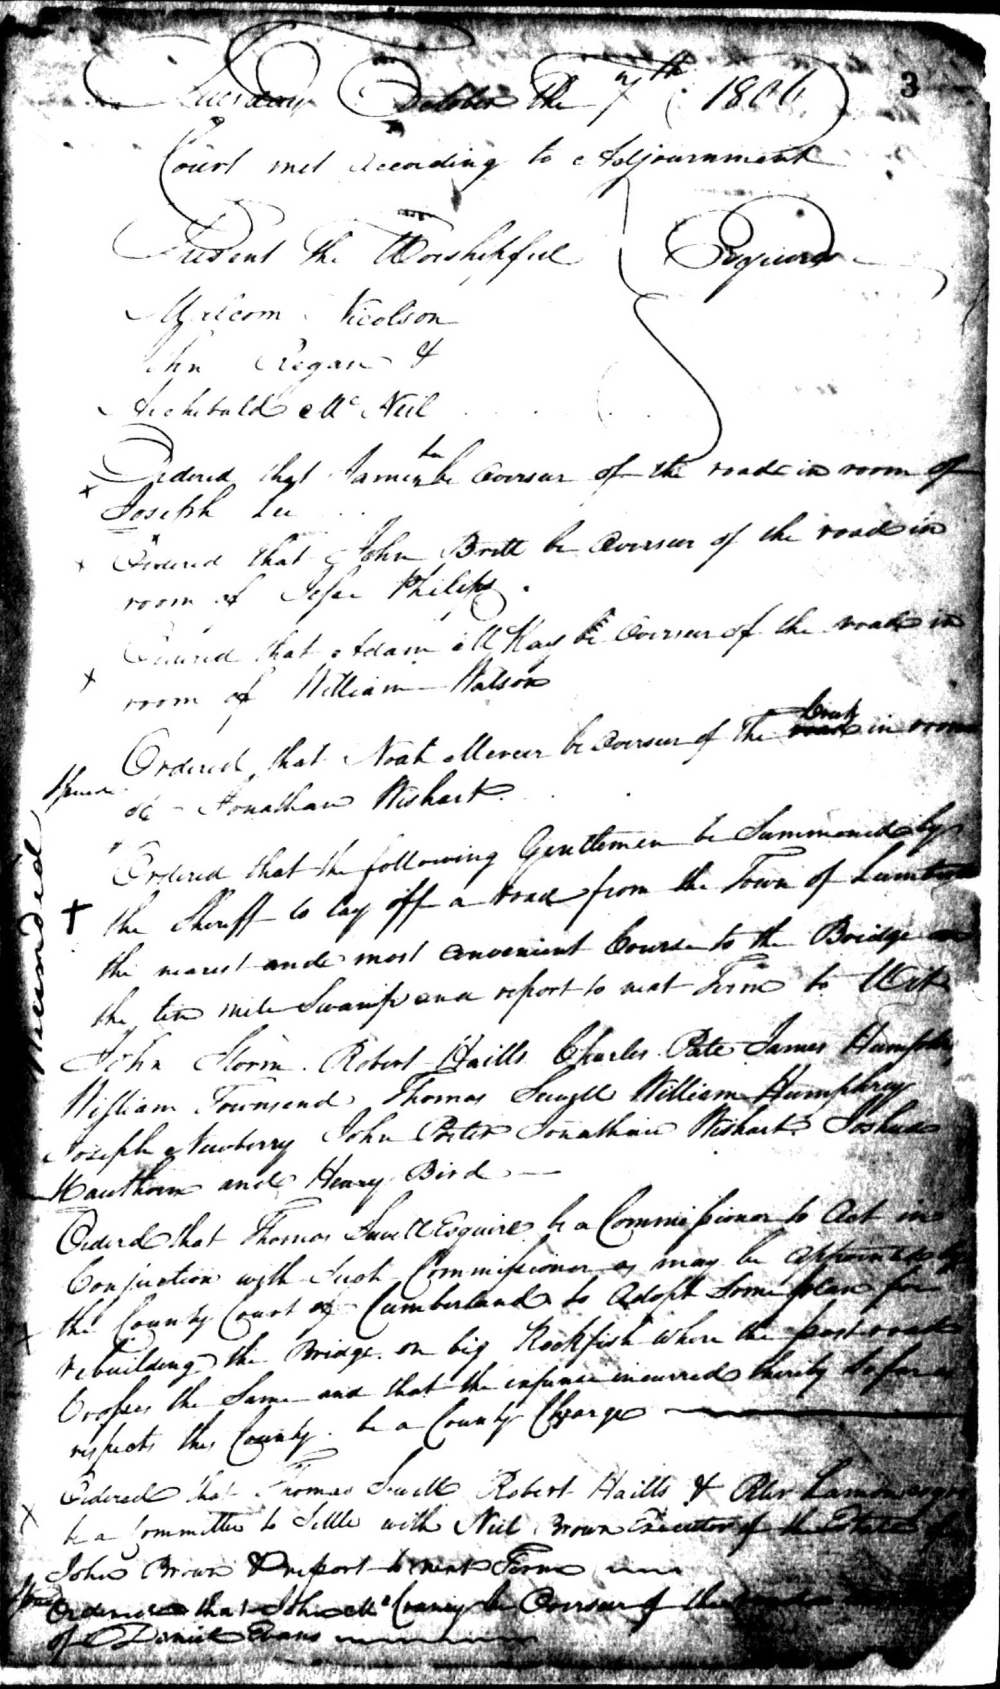 3
Tuesday October the 7th 1806
Court met According to Adjournment
Present the Worshipfull Esquires
Malcom Nicolson
John Regan &
Archibald Mc Neil
Ordered that James be Overseer of the road in room of
Joseph Lee
Ordered that John Britt be Overseer of the road in
room of Jesse Philips
Ordered that Adam McKay be Overseer of the road in
room of William Watson
Ordered that Noah Mercer be Overseer of the Creek in room
of Jonathan Wishart
Ordered that the following Gentlemen be Summoned by
the Sheriff to lay off a road from the Town of
the nearest and most Convenient Course to the Bridge on
the ten mile Swamp and report to next Term to Wit
John Storm Robert Haills Charles Pate James Humphrey
William Townsend Thomas William Humphrey
Joseph Newberry John Porter Jonathan Wishart Joshua
Hawthorn and Henry Bird
Rescinded
Ordered that Thomas Esquire be a Commissioner to Act in
Conjuction with Such Commissioner as may be appointed by
the County Court of Cumberland to Adopt Some plan for
rebuilding the Bridge on big Rockfish where the post road
Crosses the Same and that the expense incurred thereby So far as
respects this County be a County Charge
Ordered that Thomas Robert Haills &
be a Committee to Settle with Neil Brown Executor of the Estate of
John Brown & report to next Term
Ordered that John McCraney be Overseer of the
of Daniel Evans